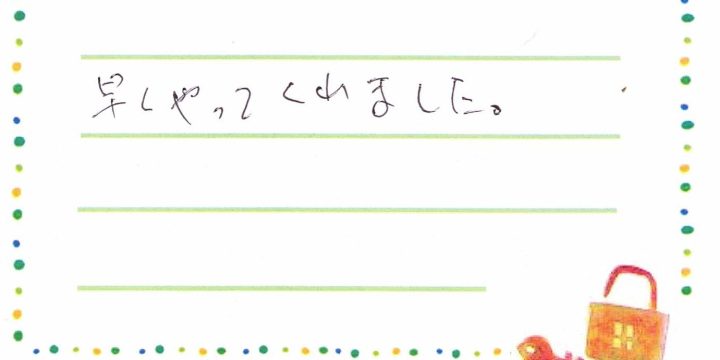 早くやってくれました。